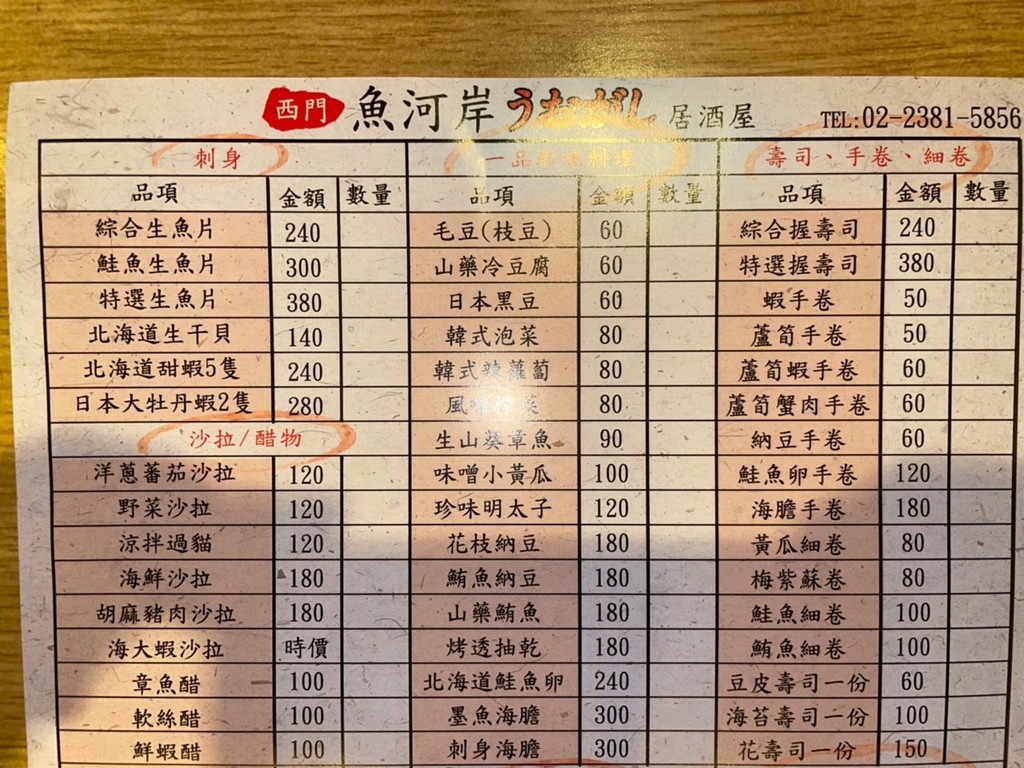 西門 魚河岸 うおがし 居酒屋 TEL:02-2381-5856
刺身 一品 料理 壽司、手卷、細卷
品項 金額 數量 品項 金額 數量 品項 金額 數量
綜合生魚片 240 毛豆(枝豆) 60 綜合握壽司 240
鮭魚生魚片 300 山藥冷豆腐 60 特選握壽司 380
特選生魚片 380 日本黑豆 60 蝦手卷 50
北海道生干貝 140 韓式泡菜 80 蘆筍手卷 50
北海道甜蝦5隻 240 韓式辣蘿蔔 80 蘆筍蝦手卷 60
日本大牡丹蝦2隻 280 風味榨菜 80 蘆筍蟹肉手卷 60
沙拉/醋物 生山葵章魚 90 納豆手卷 60
洋蔥蕃茄沙拉 120 味噌小黃瓜 100 鮭魚卵手卷 120
野菜沙拉 120 珍味明太子 120 海膽手卷 180
涼拌過貓 120 花枝納豆 180 黃瓜細卷 80
海鮮沙拉 180 鮪魚納豆 180 梅紫蘇卷 80
胡麻豬肉沙拉 180 山藥鮪魚 180 鮭魚細卷 100
海大蝦沙拉 時價 烤透抽乾 180 鮪魚細卷 100
章魚醋 100 北海道鮭魚卵 240 豆皮壽司一份 60
軟絲醋 100 墨魚海膽 300 海苔壽司一份 100
鮮蝦醋 100 刺身海膽 300 花壽司一份 150